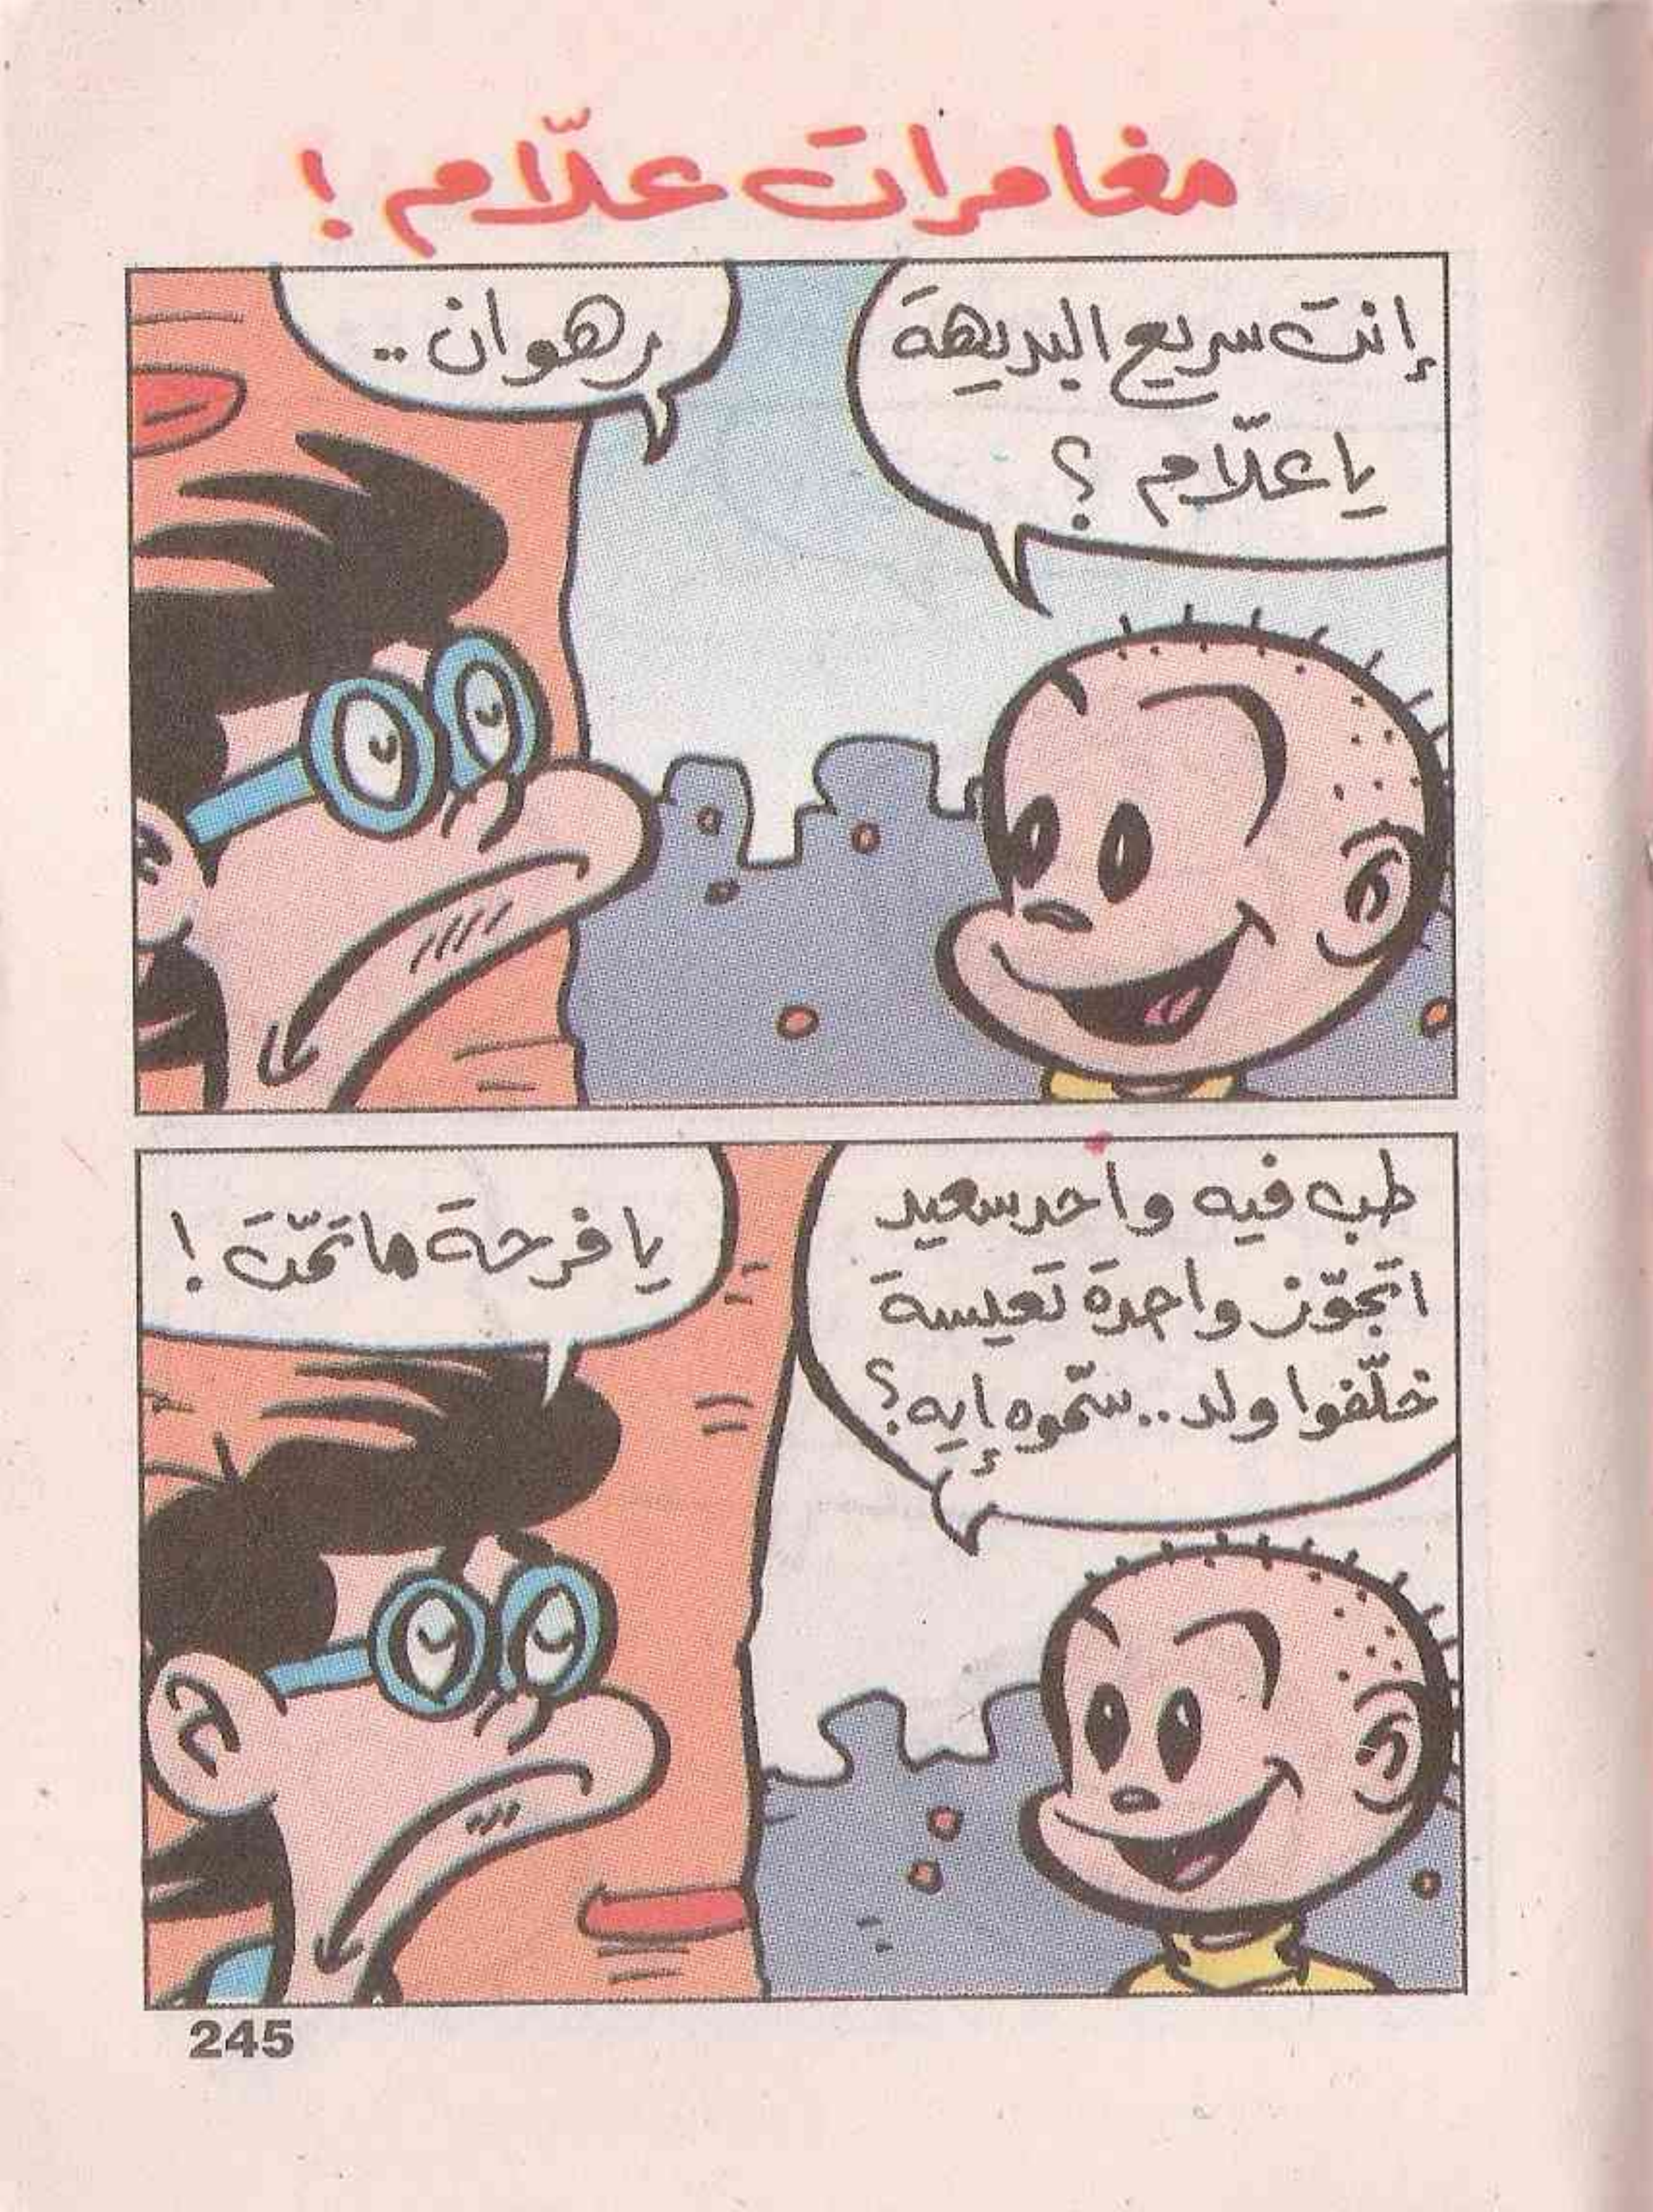 مغامرات علّام !
إنت سريع البديهة
يا علّام ؟
رهوان ..
طب فيه واحد سعيد
اتجوّز واحدة تعيسة
خلّفوا ولد .. سمّوه إيه ؟
يا فرحة ما تمّت !
245